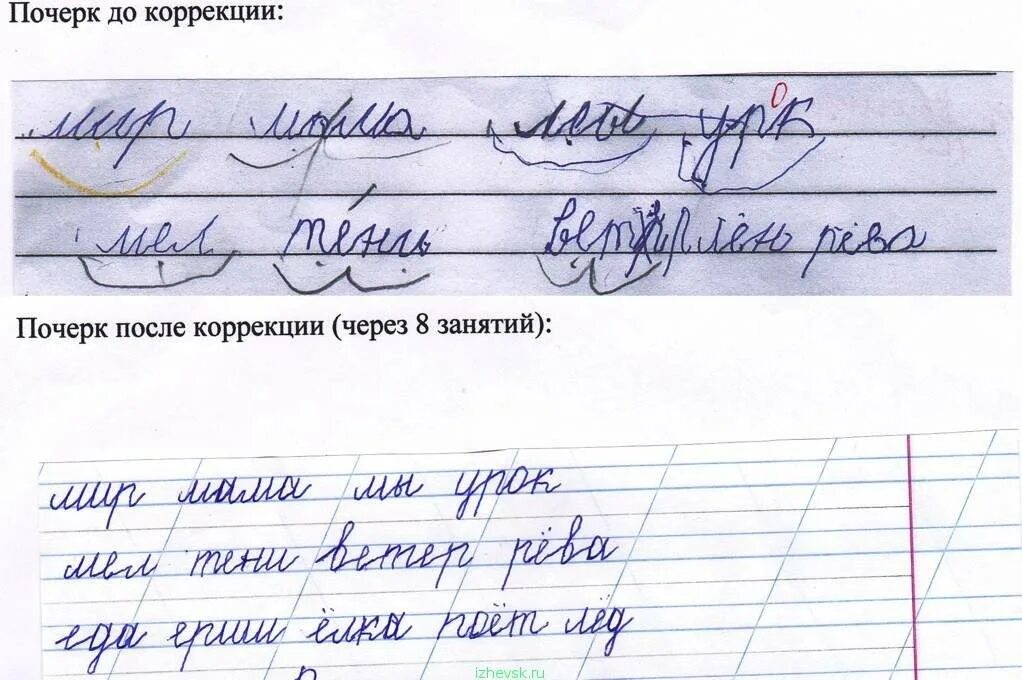 Почерк до коррекции:
мир мама мы урк
мел тень лень рёва
Почерк после коррекции (через 8 занятий):
мир мама мы урок
мел тени ветер рёва
еда ерши ёлка поёт лёд
izhevsk.ru